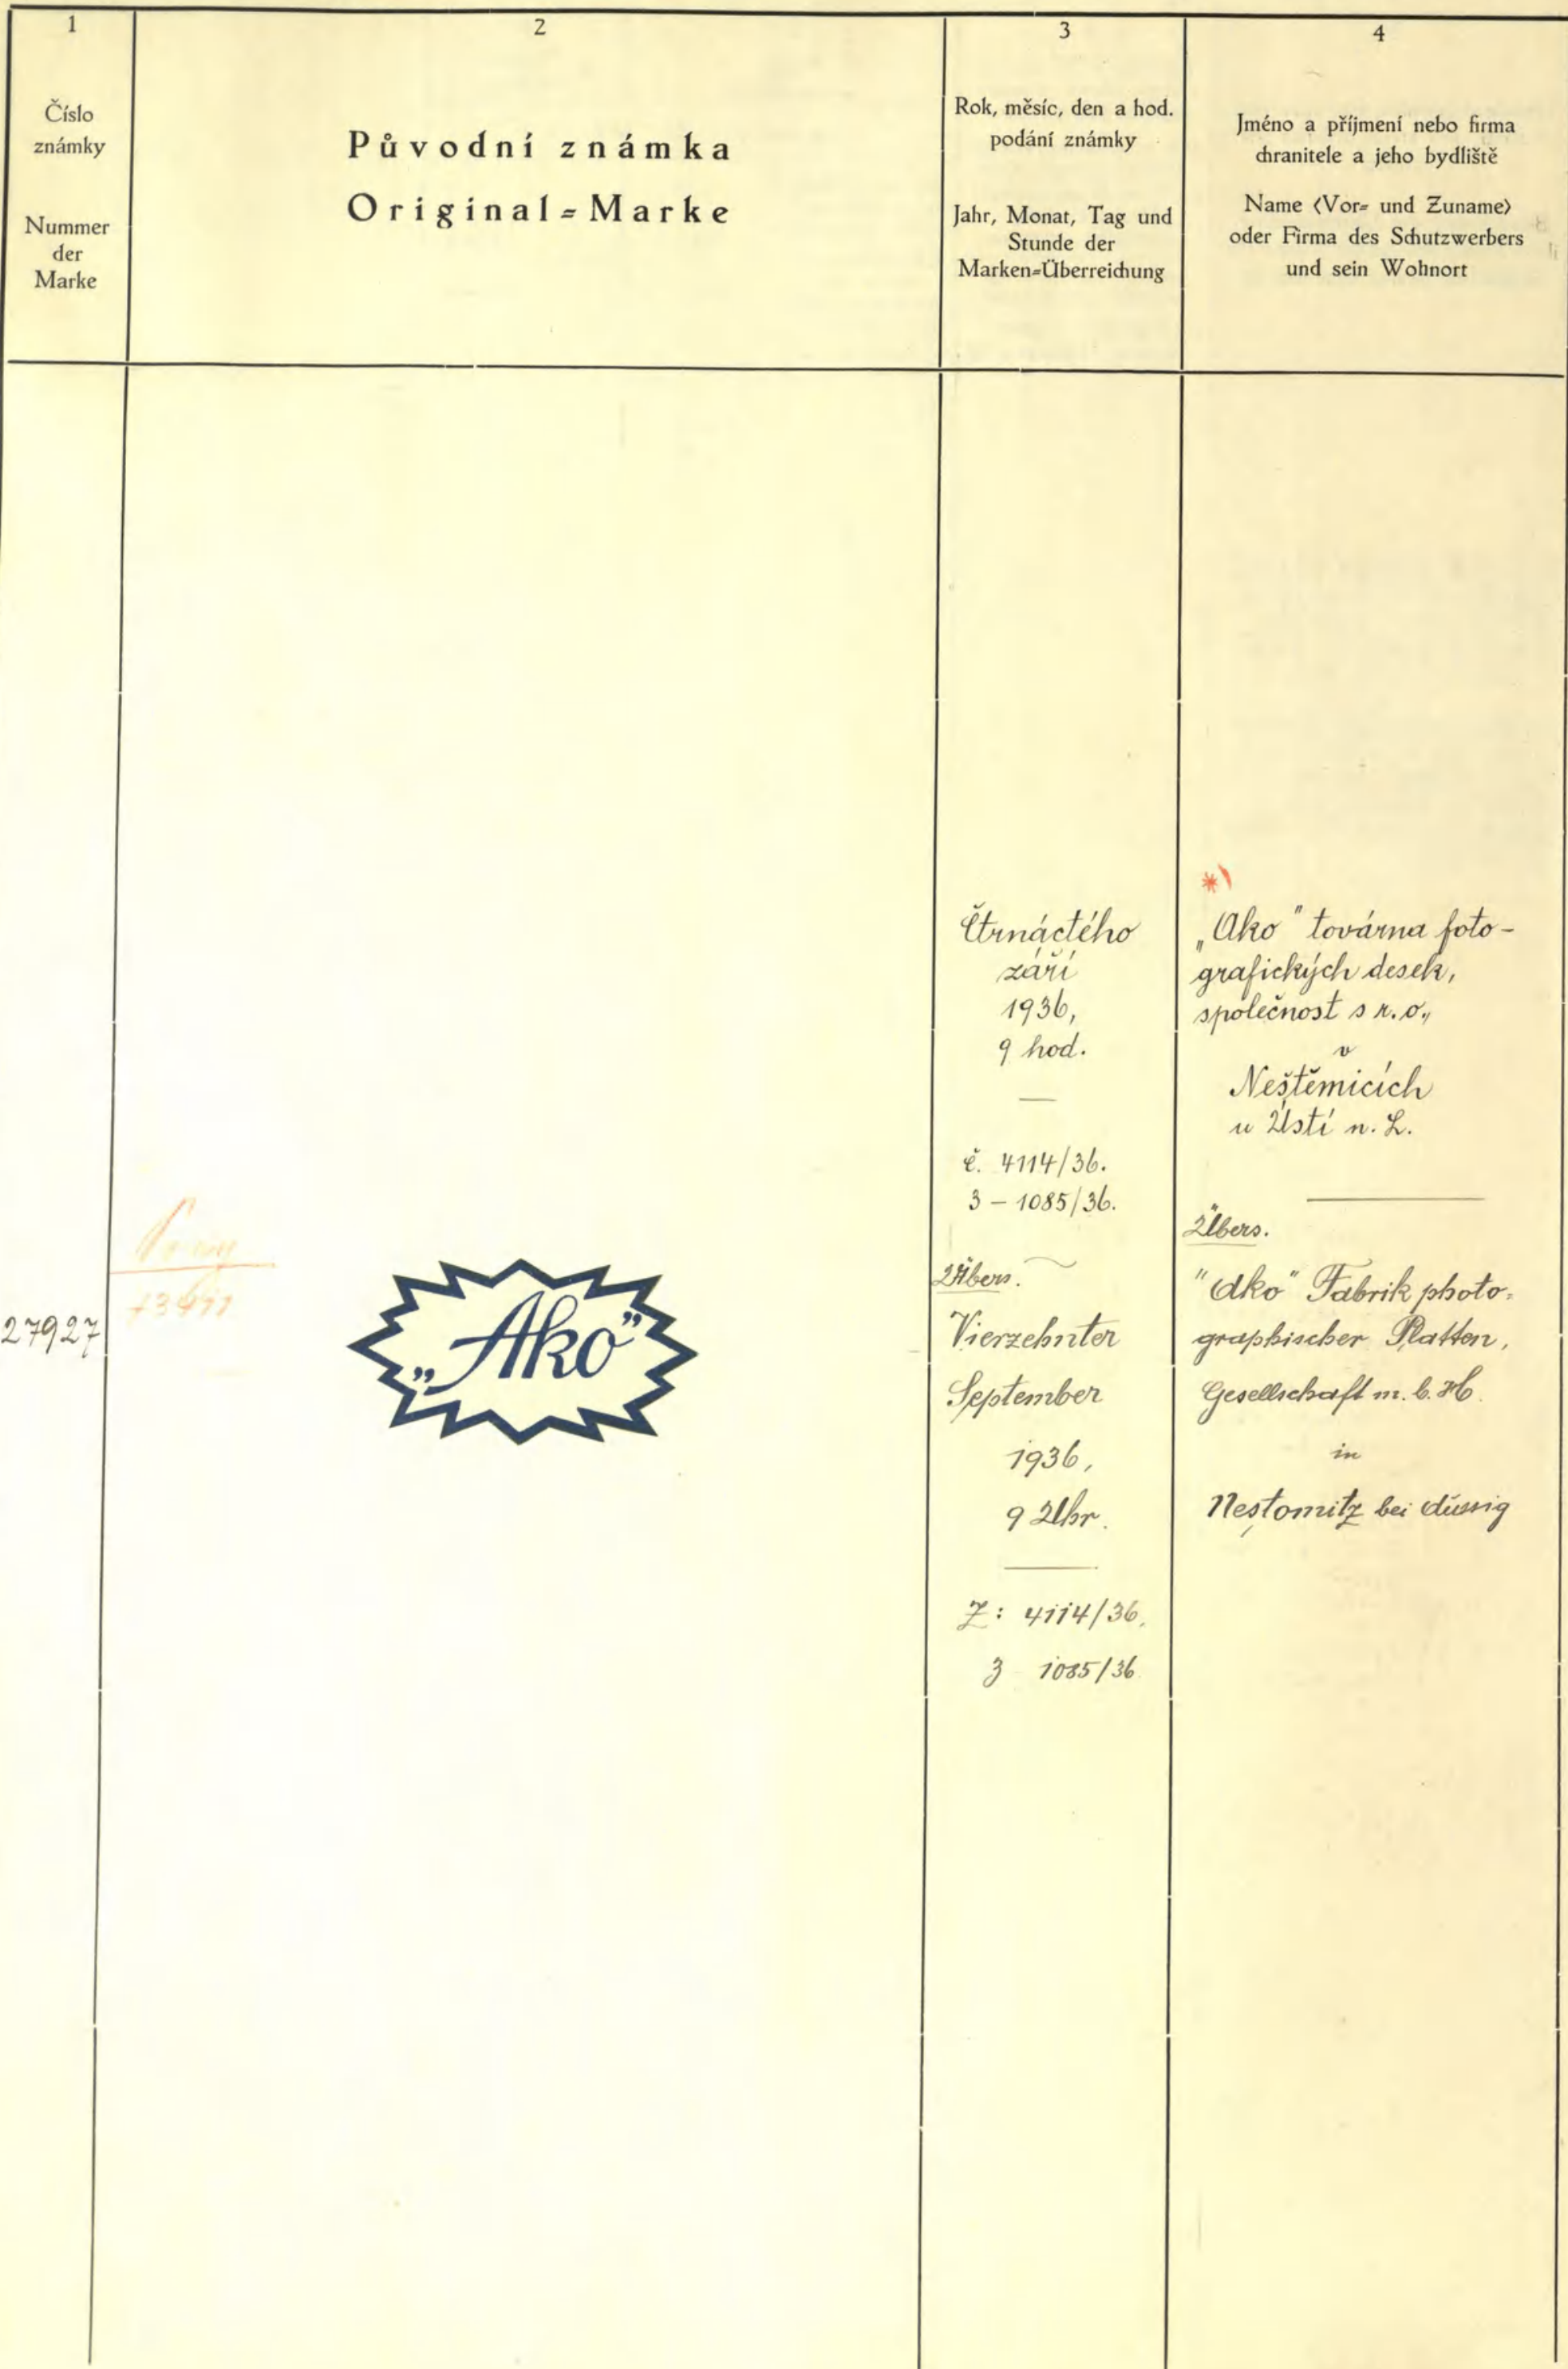 1
Číslo
známky
Nummer
der
Marke
2
Původní známka
Original=Marke
3
Rok, měsíc, den a hod.
podání známky
Jahr, Monat, Tag und
Stunde der
Marken=Überreichung
4
Jméno a příjmení nebo firma
chranitele a jeho bydliště
Name (Vor= und Zuname)
oder Firma des Schutzwerbers
und sein Wohnort
27927
„Ako"
Čtrnáctého
září
1936,
9 hod.
—
č. 4114/36.
3 – 1085/36.
Übers.
Vierzehnter
September
1936,
9 Uhr.
Z: 4114/36.
3 1085/36
*)
„Ako" továrna foto-
grafických desek,
společnost s r.o.,
v
Neštěmicích
u Ústí n. L.
Übers.
"Ako" Fabrik photo=
graphischer Platten,
Gesellschaft m. b. H.
in
Nestomitz bei Aussig